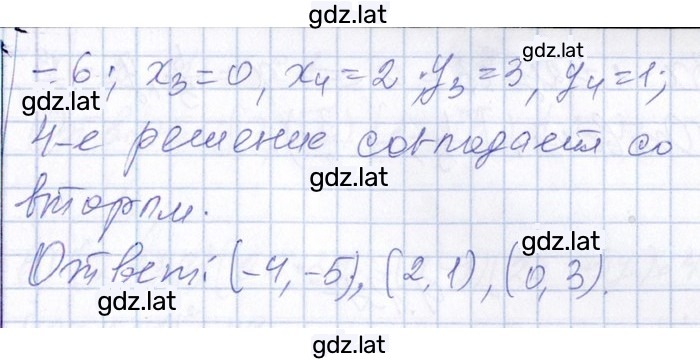 gdz.lat
gdz.lat
= 6; x₃ = 0, x₄ = 2; y₃ = 3, y₄ = 1;
gdz.lat
4-е решение совпадает со
gdz.lat
вторым.
gdz.lat
Ответ: (-4, -5), (2, 1), (0, 3).
gdz.lat
gdz.lat